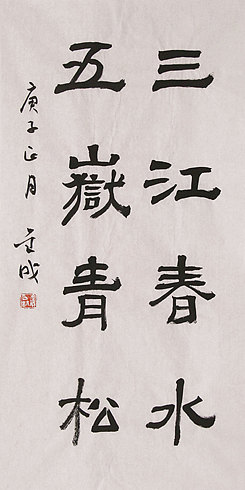 三江春水
五嶽青松
庚子正月